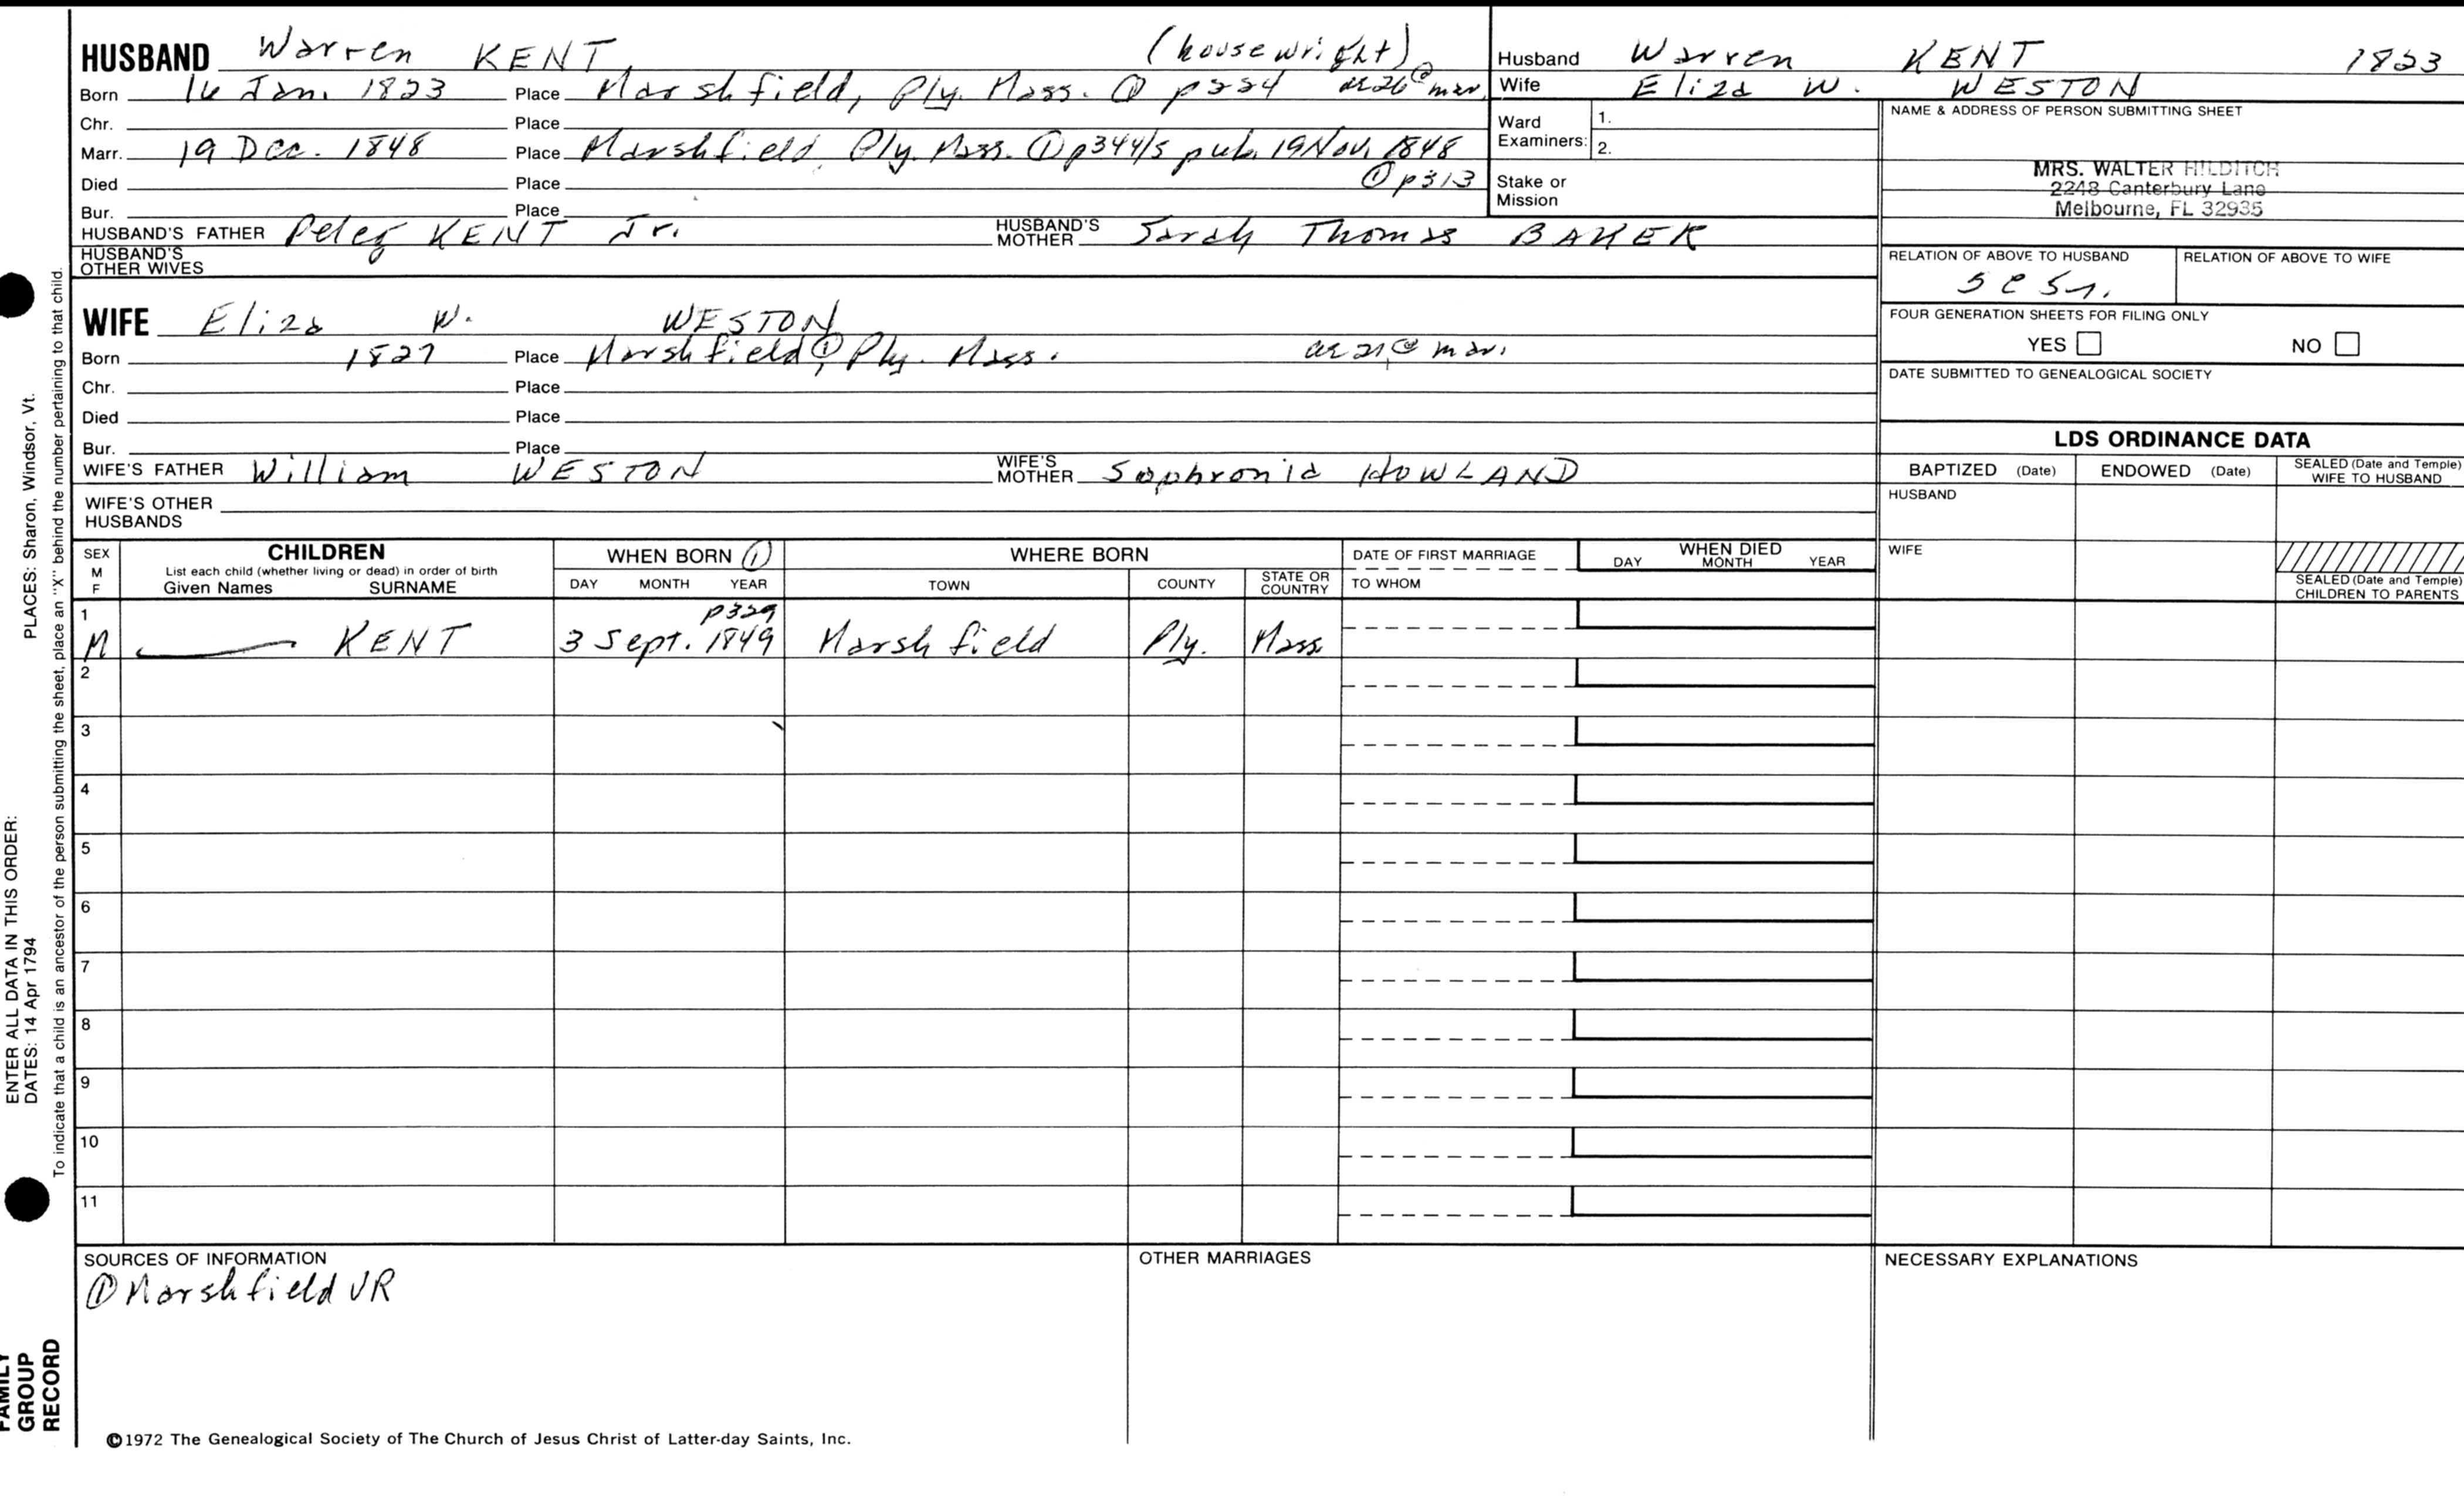 HUSBAND Warren KENT, (housewright)
Born 16 Jan. 1823 Place Marshfield, Ply. Mass. ① p224 ae 26 @ mar.
Chr. Place
Marr. 19 Dec. 1848 Place Marshfield, Ply. Mass. ① p344/5 pub. 19 Nov. 1848
Died Place ① p313
Bur. Place
HUSBAND'S FATHER Peleg KENT Jr. HUSBAND'S MOTHER Sarah Thomas BAKER
HUSBAND'S OTHER WIVES
Husband Warren KENT 1823
Wife Eliza W. WESTON
Ward Examiners: 1.
2.
Stake or Mission
NAME & ADDRESS OF PERSON SUBMITTING SHEET
MRS. WALTER HILDITCH
2248 Canterbury Lane
Melbourne, FL 32935
RELATION OF ABOVE TO HUSBAND RELATION OF ABOVE TO WIFE
FOUR GENERATION SHEETS FOR FILING ONLY
YES NO
DATE SUBMITTED TO GENEALOGICAL SOCIETY
WIFE Eliza W. WESTON
Born 1827 Place Marshfield ①, Ply. Mass. ae 21 @ mar.
Chr. Place
Died Place
Bur. Place
WIFE'S FATHER William WESTON WIFE'S MOTHER Sophronia HOWLAND
WIFE'S OTHER HUSBANDS
LDS ORDINANCE DATA
BAPTIZED (Date) ENDOWED (Date) SEALED (Date and Temple) WIFE TO HUSBAND
HUSBAND
WIFE
SEALED (Date and Temple) CHILDREN TO PARENTS
SEX M F
CHILDREN
List each child (whether living or dead) in order of birth
Given Names SURNAME
WHEN BORN ①
DAY MONTH YEAR
WHERE BORN
TOWN COUNTY STATE OR COUNTRY
DATE OF FIRST MARRIAGE
TO WHOM
WHEN DIED
DAY MONTH YEAR
1 p329
M —— KENT 3 Sept. 1849 Marshfield Ply. Mass
2
3
4
5
6
7
8
9
10
11
SOURCES OF INFORMATION
① Marshfield VR
OTHER MARRIAGES
NECESSARY EXPLANATIONS
©1972 The Genealogical Society of The Church of Jesus Christ of Latter-day Saints, Inc.
FAMILY GROUP RECORD
ENTER ALL DATA IN THIS ORDER:
DATES: 14 Apr 1794
PLACES: Sharon, Windsor, Vt.
To indicate that a child is an ancestor of the person submitting the sheet, place an "X" behind the number pertaining to that child.